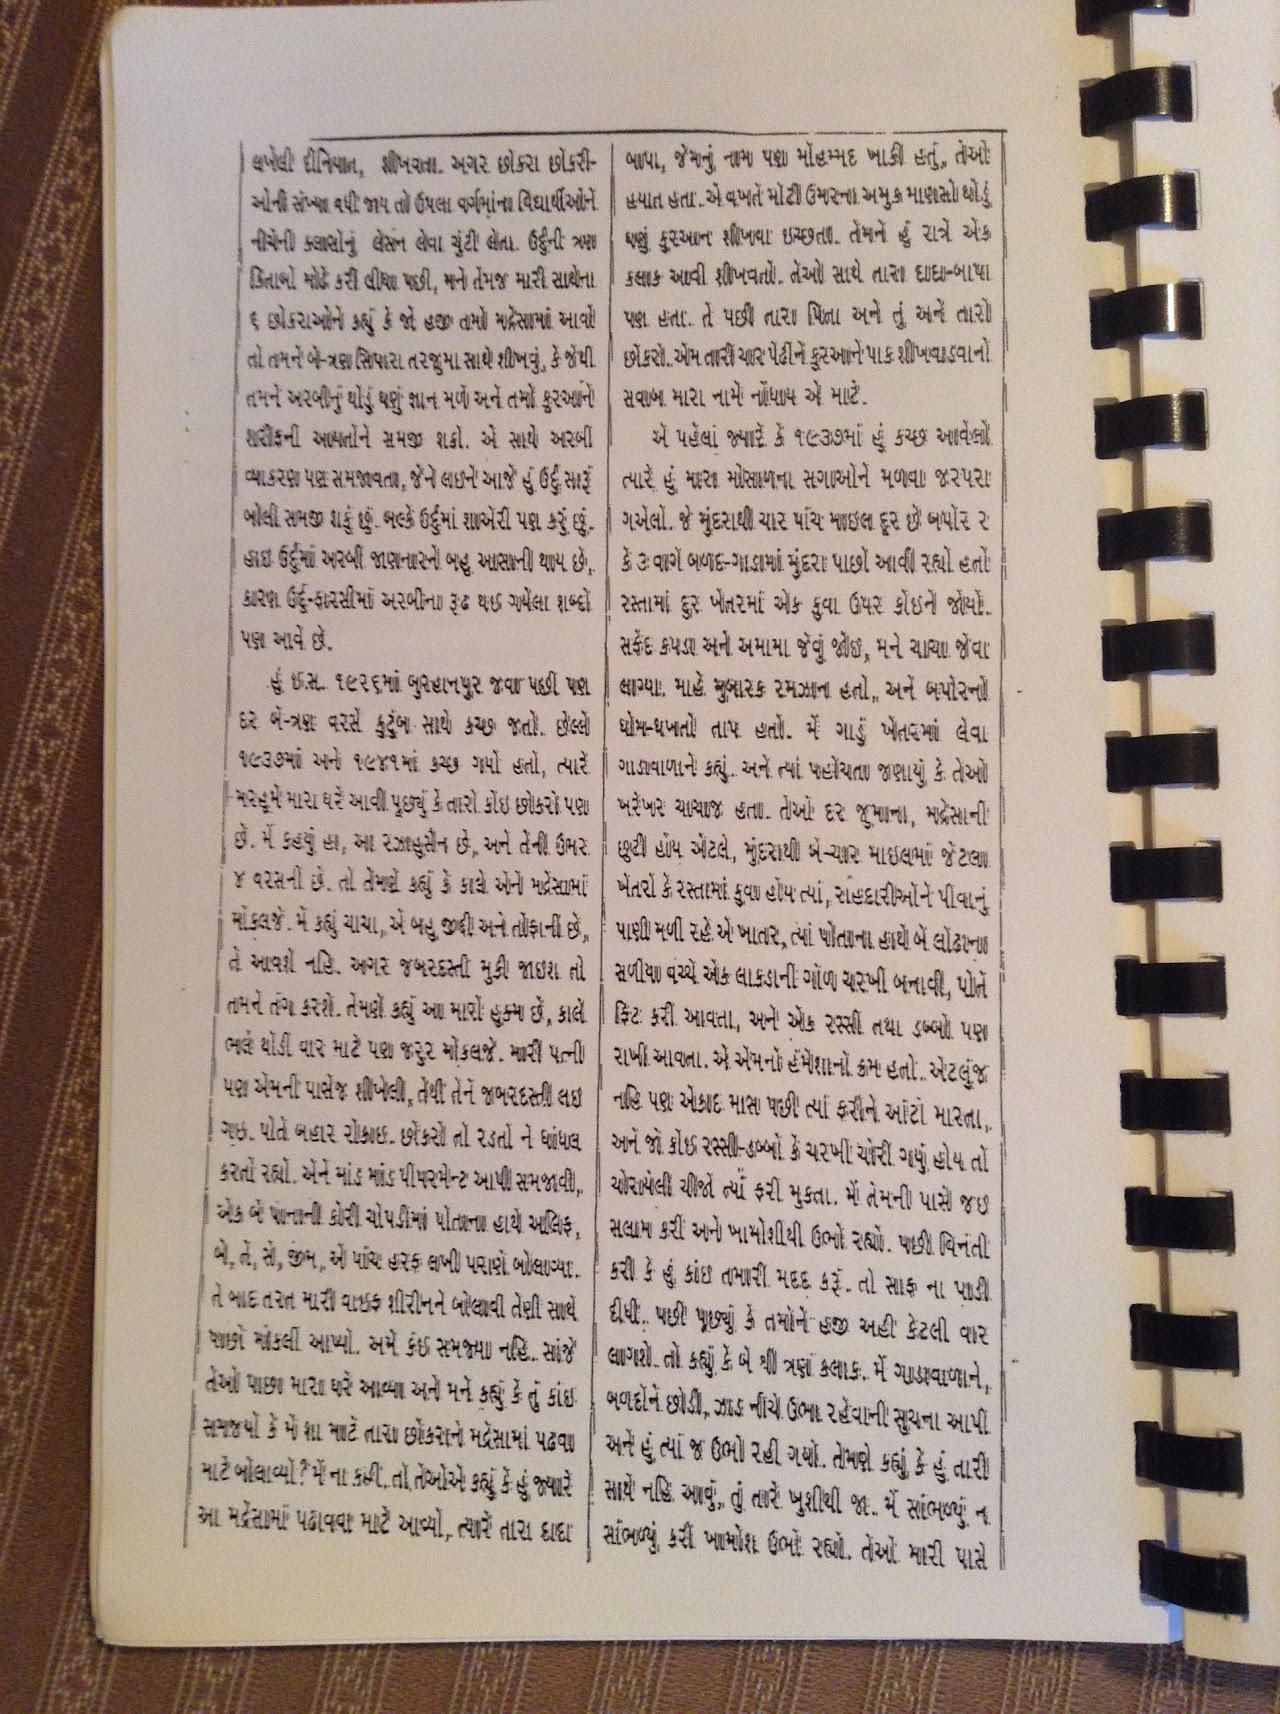 લખેલી દીનિયાત, શીખવતા. અગર છોકરા છોકરી-
ઓની સંખ્યા વધી જાય તો ઉપલા વર્ગમાંના વિદ્યાર્થીઓને
નીચેની ક્લાસોનું લેસન લેવા ચુંટી લેતા. ઉર્દુની ત્રણ
કિતાબો મોઢે કરી લીધા પછી, મને તેમજ મારી સાથેના
૬ છોકરાઓને કહ્યું કે જો હજી તમો મદ્રેસામાં આવો
તો તમને બે-ત્રણ સિપારા તરજુમા સાથે શીખવું, કે જેથી
તમને અરબીનું થોડું ઘણું જ્ઞાન મળે અને તમો કુરઆને
શરીફની આયતોને સમજી શકો. એ સાથે અરબી
વ્યાકરણ પણ સમજાવતા, જેને લઇને આજે હું ઉર્દુ સારૂં
બોલી સમજી શકું છું. બલ્કે ઉર્દુમાં શાએરી પણ કરું છું.
હાઇ ઉર્દુમાં અરબી જાણનારને બહુ આસાની થાય છે,
કારણ ઉર્દુ-ફારસીમાં અરબીના રૂઢ થઇ ગયેલા શબ્દો
પણ આવે છે.
હું ઇ.સ. ૧૯૨૬માં બુરહાનપુર જવા પછી પણ
દર બે-ત્રણ વરસે કુટુંબ સાથે કચ્છ જતો. છેલ્લે
૧૯૩૭માં અને ૧૯૪૧માં કચ્છ ગયો હતો, ત્યારે
મરહૂમે મારા ઘરે આવી પૂછ્યું કે તારો કોઇ છોકરો પણ
છે. મેં કહયું હા, આ રઝાહુસૈન છે, અને તેની ઉમર
૪ વરસની છે. તો તેમણે કહ્યું કે કાલે એને મદ્રેસામાં
મોકલજે. મેં કહ્યું ચાચા, એ બહુ જીદ્દી અને તોફાની છે,
તે આવશે નહિ. અગર જબરદસ્તી મુકી જાઇશ તો
તમને તંગ કરશે. તેમણે કહ્યું આ મારો હુકમ છે, કાલે
ભલે થોડી વાર માટે પણ જરુર મોકલજે. મારી પત્ની
પણ એમની પાસેજ શીખેલી, તેથી તેને જબરદસ્તી લઇ
ગઇ. પોતે બહાર રોકાઇ. છોકરો તો રડતો ને ધાંધલ
કરતો રહ્યો. એને માંડ માંડ પીપરમેન્ટ આપી સમજાવી,
એક બે પાનાની કોરી ચોપડીમાં પોતાના હાથે અલિફ,
બે, તે, સે, જીમ, એ પાંચ હરફ લખી પરાણે બોલાવ્યા.
તે બાદ તરત મારી વાઇફ શીરીનને બોલાવી તેણી સાથે
પાછો મોકલી આપ્યો. અમે કંઇ સમજ્યા નહિ. સાંજે
તેઓ પાછા મારા ઘરે આવ્યા અને મને કહ્યું કે તું કાંઇ
સમજયો કે મેં શા માટે તારા છોકરાને મદ્રેસામાં પઢવા
માટે બોલાવ્યો? મેં ના કહી. તો તેઓએ કહ્યું કે હું જ્યારે
આ મદ્રેસામાં પઢાવવા માટે આવ્યો, ત્યારે તારા દાદા
બાપા, જેમનું નામ પણ મોહમ્મદ ખાકી હતું, તેઓ
હયાત હતા. એ વખતે મોટી ઉમરના અમુક માણસો થોડું
ઘણું કુરઆન શીખવા ઇચ્છતા. તેમને હું રાત્રે એક
કલાક આવી શીખવતો. તેઓ સાથે તારા દાદા-બાપા
પણ હતા. તે પછી તારા પિતા અને તું અને તારો
છોકરો. એમ તારી ચાર પેઢીને કુરઆને પાક શીખવાડવાનો
સવાબ મારા નામે નોંધાય એ માટે.
એ પહેલાં જ્યારે કે ૧૯૩૭માં હું કચ્છ આવેલો
ત્યારે હું મારા મોસાળના સગાઓને મળવા જરપરા
ગએલો. જે મુંદરાથી ચાર પાંચ માઇલ દૂર છે બપોર ૨
કે ૩ વાગે બળદ-ગાડામાં મુંદરા પાછો આવી રહ્યો હતો
રસ્તામાં દુર ખેતરમાં એક કુવા ઉપર કોઇને જોયો.
સફેદ કપડા અને અમામા જેવું જોઇ, મને ચાચા જેવા
લાગ્યા. માહે મુબારક રમઝાન હતો, અને બપોરનો
ધોમ-ધખતો તાપ હતો. મેં ગાડું ખેતરમાં લેવા
ગાડાવાળાને કહ્યું. અને ત્યાં પહોંચતા જણાયું કે તેઓ
ખરેખર ચાચાજ હતા. તેઓ દર જુમાના, મદ્રેસાની
છુટી હોય એટલે, મુંદરાથી બે-ચાર માઇલમાં જેટલા
ખેતરો કે રસ્તામાં કુવા હોય ત્યાં, રાહદારીઓને પીવાનું
પાણી મળી રહે એ ખાતર, ત્યાં પોતાના હાથે બે લોઢાના
સળીયા વચ્ચે એક લાકડાની ગોળ ચરખી બનાવી, પોતે
ફિટ કરી આવતા, અને એક રસ્સી તથા ડબ્બો પણ
રાખી આવતા. એ એમનો હંમેશાનો ક્રમ હતો. એટલુંજ
નહિ પણ એકાદ માસ પછી ત્યાં ફરીને આંટો મારતા,
અને જો કોઇ રસ્સી-ડબ્બો કે ચરખી ચોરી ગયું હોય તો
ચોરાયેલી ચીજો ત્યાં ફરી મુકતા. મેં તેમની પાસે જઇ
સલામ કરી અને ખામોશીથી ઉભો રહ્યો. પછી વિનંતી
કરી કે હું કાંઇ તમારી મદદ કરૂં. તો સાફ ના પાડી
દીધી. પછી પૂછ્યું કે તમોને હજી અહીં કેટલી વાર
લાગશે. તો કહ્યું કે બે થી ત્રણ કલાક. મેં ગાડાવાળાને,
બળદોને છોડી, ઝાડ નીચે ઉભા રહેવાની સુચના આપી
અને હું ત્યાં જ ઉભો રહી ગયો. તેમણે કહ્યું કે હું તારી
સાથે નહિ આવું, તું તારે ખુશીથી જા. મેં સાંભળ્યું ન
સાંભળ્યું કરી ખામોશ ઉભો રહ્યો. તેઓ મારી પાસે